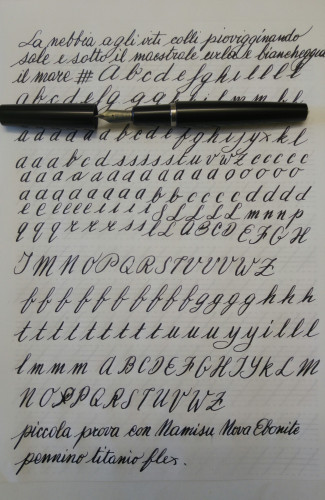 La nebbia agli irti colli piovigginando
sale e sotto il maestrale urla e biancheggia
il mare # A b c d e f g h i l l l l
a b c d e f g g g h i l m m b l
a a a a a a b c d e f g h i j y x k l
a a a b c d s s s s s t u v w z c c c c c
a a a a a a a a a a a a o o o o o
a a a a a a a a b b c c c c d d d d
e e e e e e i i i i f L L L L m n n p
q q q r r r s s i L A B C D E F G H
I M N O P Q R S T U V V W Z
f f f f f f f f f f g g g g h h h
t t t t t t t t t u u u y y i l l l
l m m m A B C D E F G H I Y K L M
N O P P Q R S T U V W Z
piccola prova con Namisu Nova Ebonite
pennino titanio flex.